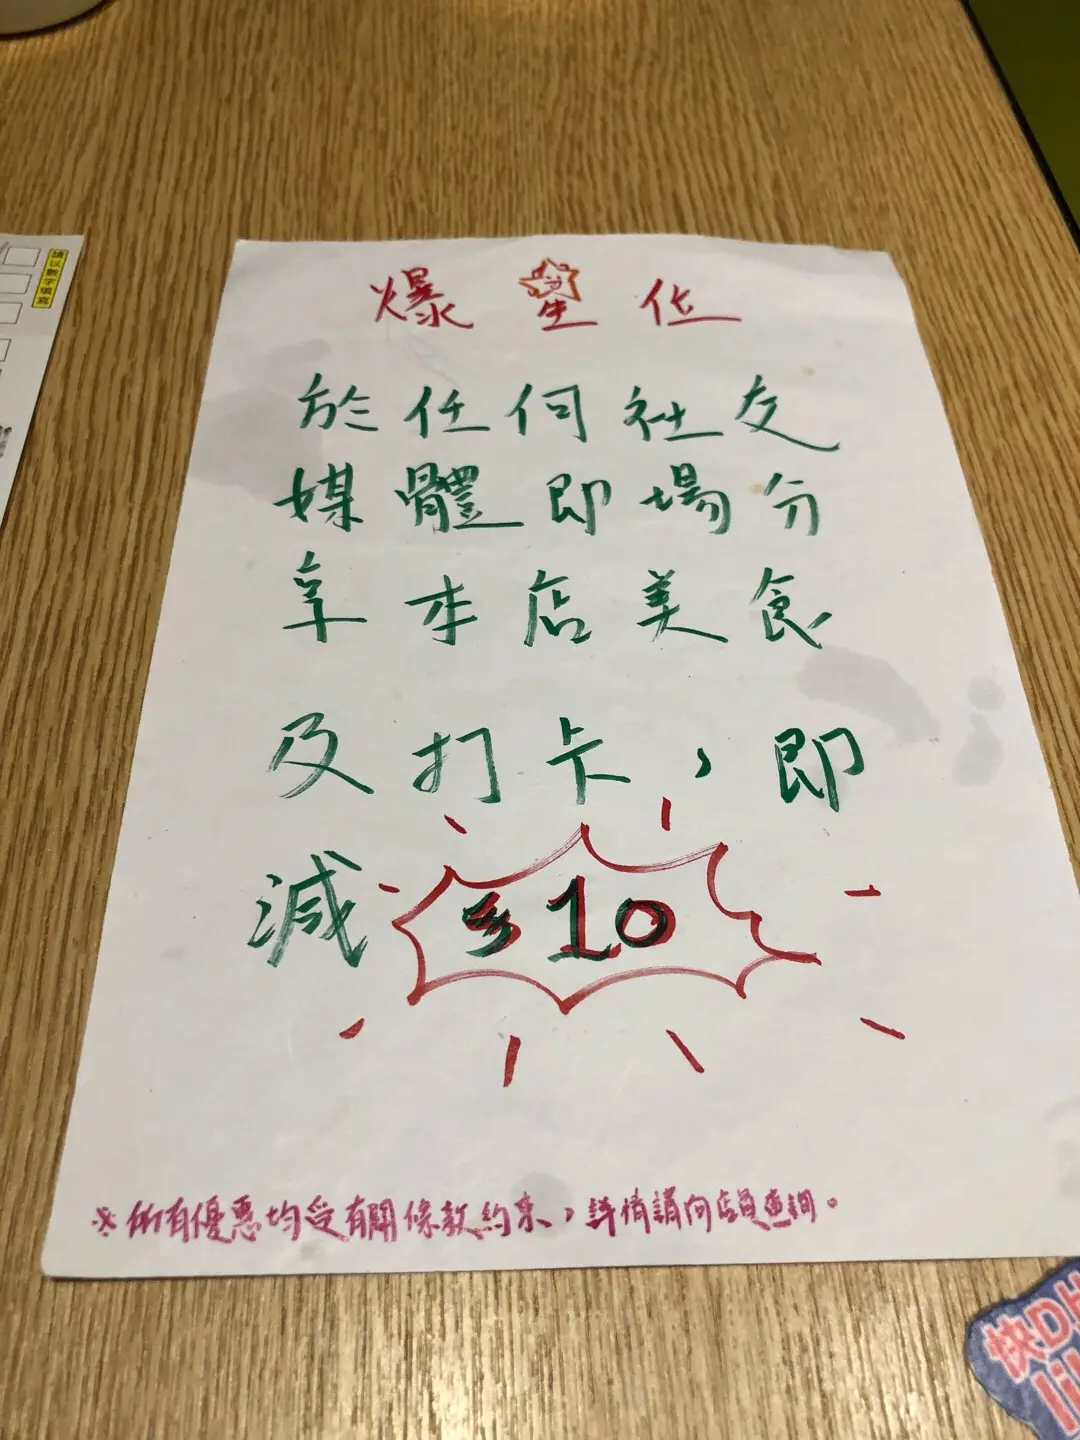 爆星位
於任何社交
媒體即場分
享本店美食
及打卡，即
減 $10
※所有優惠均受有關條款約束，詳情請向店員查詢。
請以數字填寫
快DH
lil